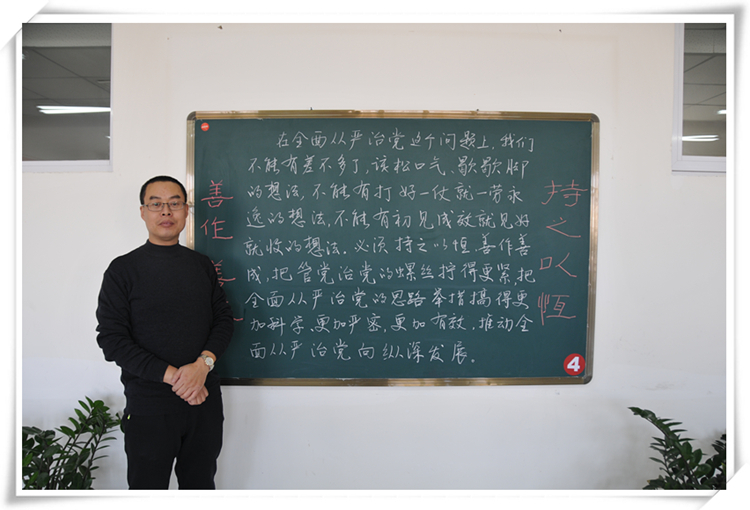 在全面从严治党这个问题上,我们
不能有差不多了,该松口气、歇歇脚
的想法,不能有打好一仗就一劳永
逸的想法,不能有初见成效就见好
就收的想法。必须持之以恒、善作善
成,把管党治党的螺丝拧得更紧,把
全面从严治党的思路举措搞得更
加科学、更加严密、更加有效,推动全
面从严治党向纵深发展。
善作善
持之以恒
4